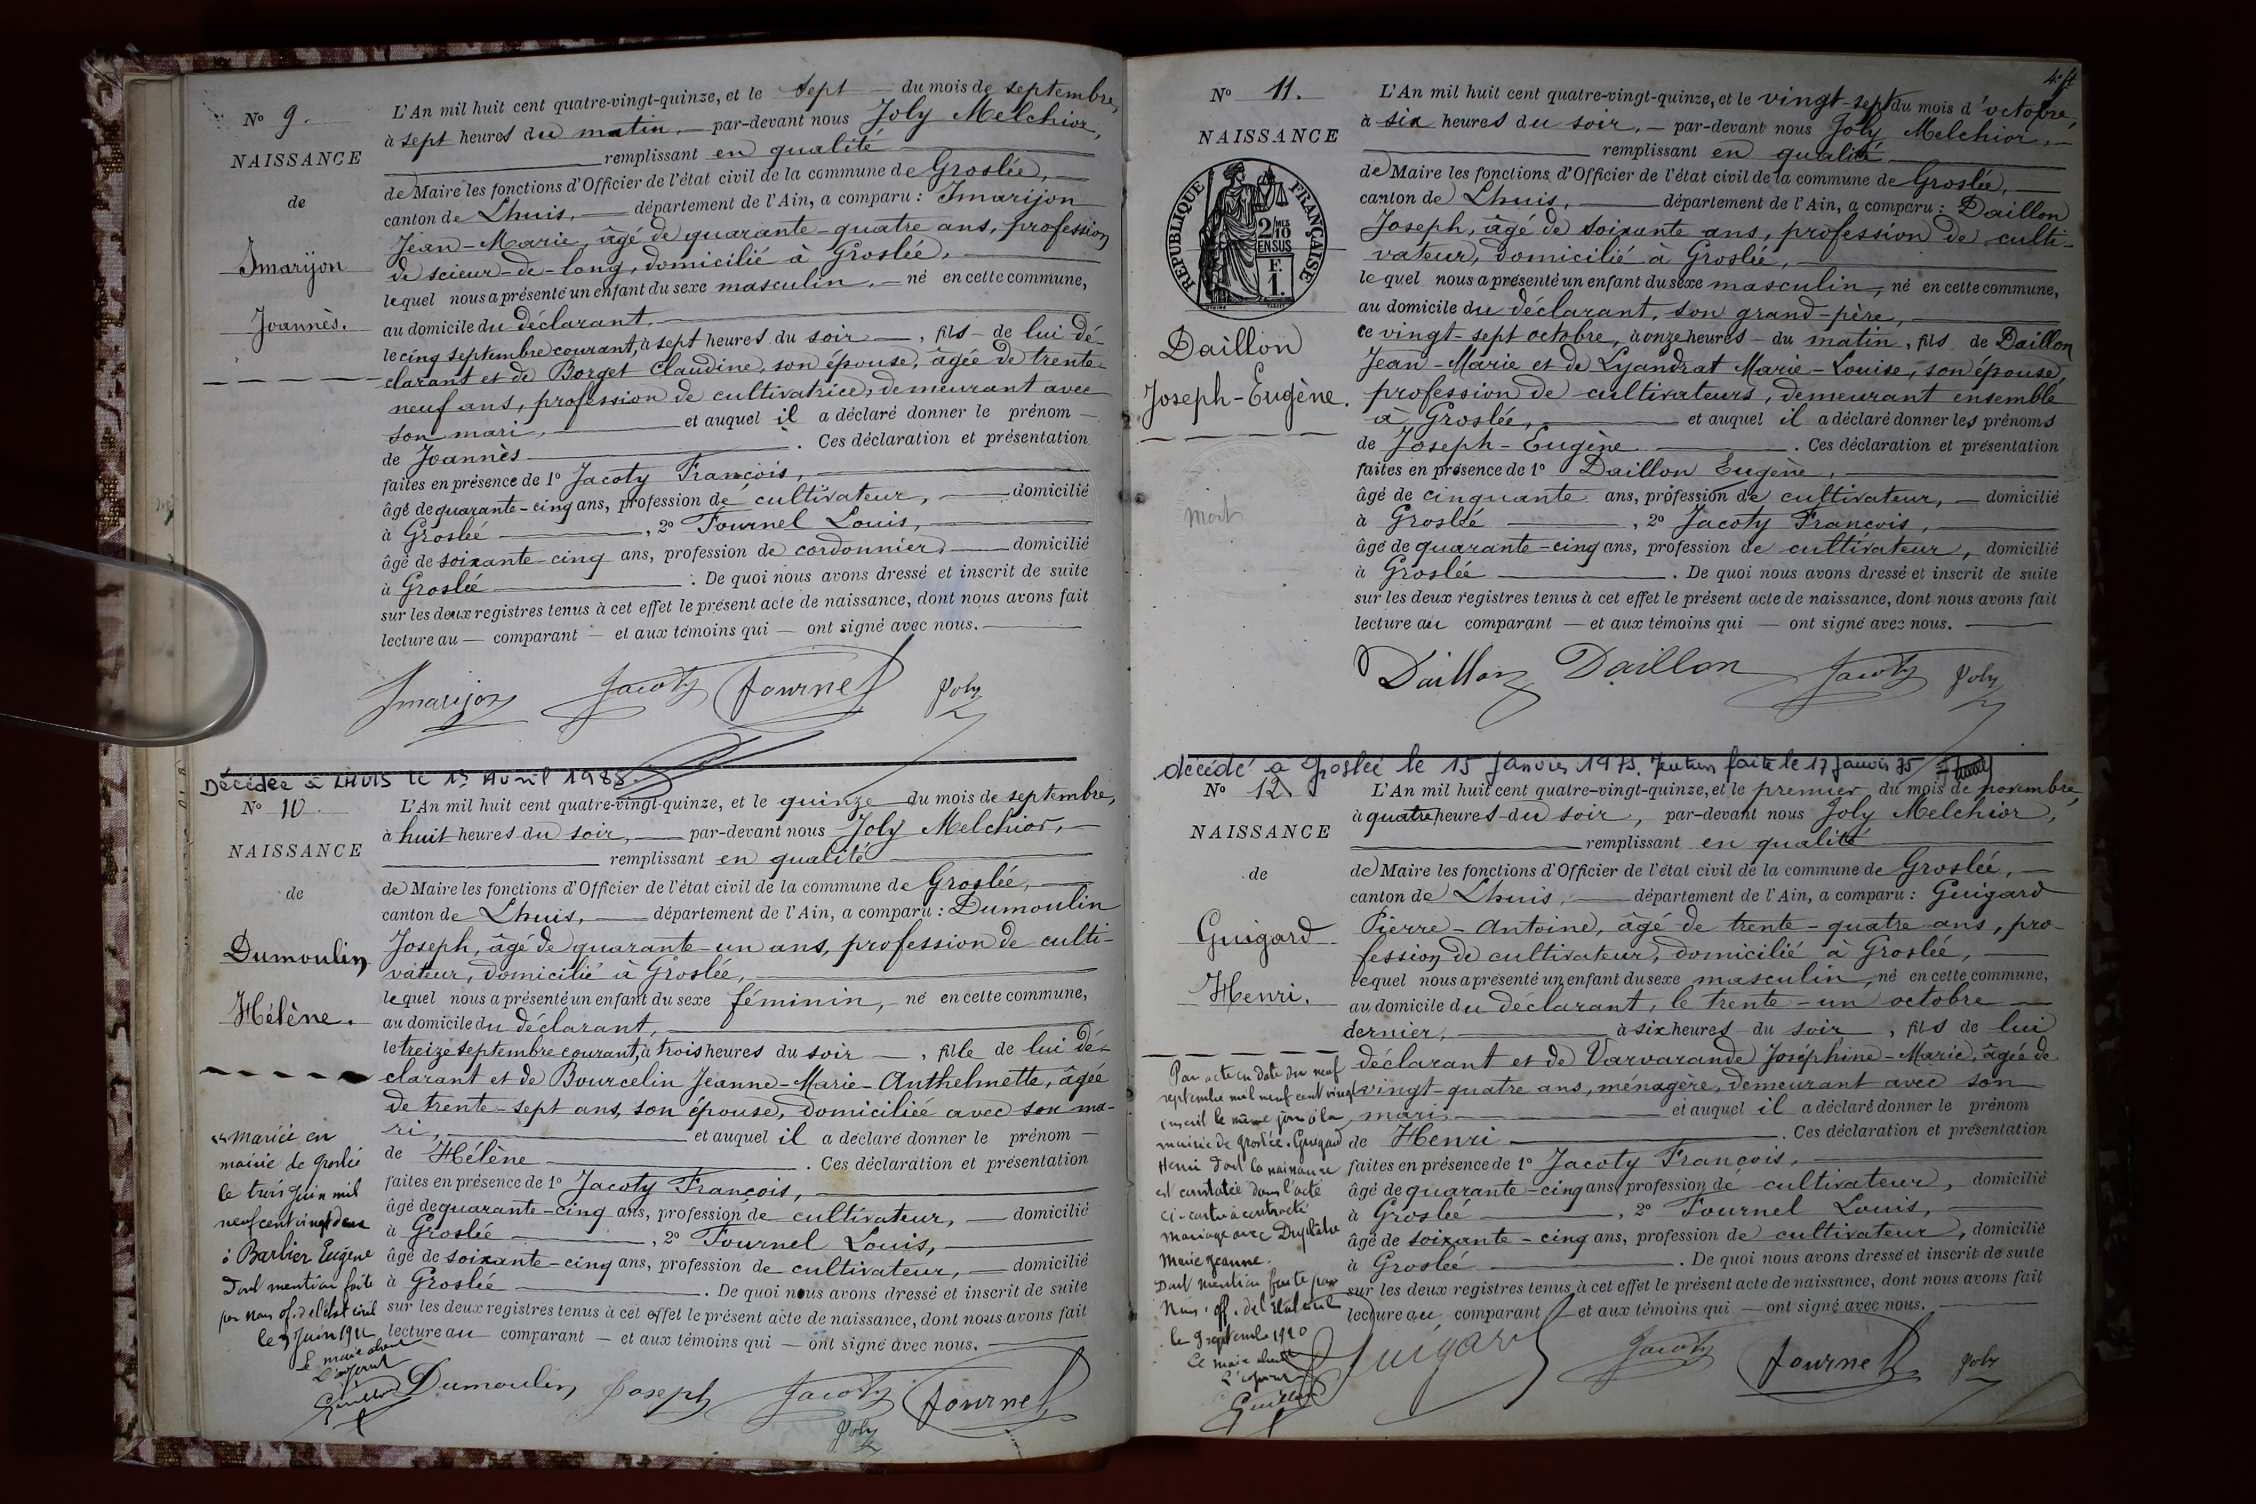 N° 9.
NAISSANCE
de
Imarijon
Joannès.
L'An mil huit cent quatre-vingt-quinze, et le sept du mois de septembre,
à sept heures du matin, par-devant nous Joly Melchior,
remplissant en qualité
de Maire les fonctions d'Officier de l'état civil de la commune de Groslée,
canton de Lhuis, département de l'Ain, a comparu : Imarijon
Jean-Marie, âgé de quarante-quatre ans, profession
de scieur-de-long, domicilié à Groslée,
lequel nous a présenté un enfant du sexe masculin, né en cette commune,
au domicile du déclarant,
le cinq septembre courant, à sept heures du soir, fils de lui dé-
clarant et de Borget Claudine, son épouse, âgée de trente-
neuf ans, profession de cultivatrice, demeurant avec
son mari, et auquel il a déclaré donner le prénom
de Joannès. Ces déclaration et présentation
faites en présence de 1° Jacoty François,
âgé de quarante-cinq ans, profession de cultivateur, domicilié
à Groslée, 2° Fournel Louis,
âgé de soixante-cinq ans, profession de cordonnier, domicilié
à Groslée. De quoi nous avons dressé et inscrit de suite
sur les deux registres tenus à cet effet le présent acte de naissance, dont nous avons fait
lecture au comparant et aux témoins qui ont signé avec nous.
Imarijon Jacoty Fournel Joly
Décédée à LHUIS le 13 Avril 1988
N° 10
NAISSANCE
de
Dumoulin
Hélène.
L'An mil huit cent quatre-vingt-quinze, et le quinze du mois de septembre,
à huit heures du soir, par-devant nous Joly Melchior,
remplissant en qualité
de Maire les fonctions d'Officier de l'état civil de la commune de Groslée,
canton de Lhuis, département de l'Ain, a comparu : Dumoulin
Joseph, âgé de quarante-un ans, profession de culti-
vateur, domicilié à Groslée,
lequel nous a présenté un enfant du sexe féminin, né en cette commune,
au domicile du déclarant,
le treize septembre courant, à trois heures du soir, fille de lui dé-
clarant et de Bourcelin Jeanne-Marie-Anthelmette, âgée
de trente-sept ans, son épouse, domiciliée avec son ma-
ri, et auquel il a déclaré donner le prénom
de Hélène. Ces déclaration et présentation
faites en présence de 1° Jacoty François,
âgé de quarante-cinq ans, profession de cultivateur, domicilié
à Groslée, 2° Fournel Louis,
âgé de soixante-cinq ans, profession de cultivateur, domicilié
à Groslée. De quoi nous avons dressé et inscrit de suite
sur les deux registres tenus à cet effet le présent acte de naissance, dont nous avons fait
lecture au comparant et aux témoins qui ont signé avec nous.
Mariée en
mairie de Groslée
le trois juin mil
neuf cent vingt deux
à Barbier Eugène
Dont mention faite
par nous off. de l'état civil
le 3 Juin 1922
le maire absent
L'adjoint
Guillon
Dumoulin Joseph Jacoty Fournel
Joly
N° 11.
NAISSANCE
REPUBLIQUE FRANÇAISE
2/10 MES
EN SUS
F.
1.
Daillon
Joseph-Eugène.
mort
L'An mil huit cent quatre-vingt-quinze, et le vingt-sept du mois d'octobre,
à six heures du soir, par-devant nous Joly Melchior,
remplissant en qualité
de Maire les fonctions d'Officier de l'état civil de la commune de Groslée,
canton de Lhuis, département de l'Ain, a comparu : Daillon
Joseph, âgé de soixante ans, profession de culti-
vateur, domicilié à Groslée,
lequel nous a présenté un enfant du sexe masculin, né en cette commune,
au domicile du déclarant, son grand-père,
ce vingt-sept octobre, à onze heures du matin, fils de Daillon
Jean-Marie et de Lyandrat Marie-Louise, son épouse,
profession de cultivateurs, demeurant ensemble
à Groslée, et auquel il a déclaré donner les prénoms
de Joseph-Eugène. Ces déclaration et présentation
faites en présence de 1° Daillon Eugène,
âgé de cinquante ans, profession de cultivateur, domicilié
à Groslée, 2° Jacoty François,
âgé de quarante-cinq ans, profession de cultivateur, domicilié
à Groslée. De quoi nous avons dressé et inscrit de suite
sur les deux registres tenus à cet effet le présent acte de naissance, dont nous avons fait
lecture au comparant et aux témoins qui ont signé avec nous.
Daillon Daillon Jacoty Joly
décédé à Groslée le 15 Janvier 1975. faite le 17 Janvier 75
N° 12.
NAISSANCE
de
Guigard
Henri.
L'An mil huit cent quatre-vingt-quinze, et le premier du mois de novembre,
à quatre heures du soir, par-devant nous Joly Melchior,
remplissant en qualité
de Maire les fonctions d'Officier de l'état civil de la commune de Groslée,
canton de Lhuis, département de l'Ain, a comparu : Guigard
Pierre-Antoine, âgé de trente-quatre ans, pro-
fession de cultivateur, domicilié à Groslée,
lequel nous a présenté un enfant du sexe masculin, né en cette commune,
au domicile du déclarant, le trente-un octobre
dernier, à six heures du soir, fils de lui
déclarant et de Varvarande Joséphine-Marie, âgée de
vingt-quatre ans, ménagère, demeurant avec son
mari, et auquel il a déclaré donner le prénom
de Henri. Ces déclaration et présentation
faites en présence de 1° Jacoty François,
âgé de quarante-cinq ans, profession de cultivateur, domicilié
à Groslée, 2° Fournel Louis,
âgé de soixante-cinq ans, profession de cultivateur, domicilié
à Groslée. De quoi nous avons dressé et inscrit de suite
sur les deux registres tenus à cet effet le présent acte de naissance, dont nous avons fait
lecture au comparant et aux témoins qui ont signé avec nous.
Par acte en date du neuf
septembre mil neuf cent vingt
inscrit le même jour à la
mairie de Groslée. Guigard
Henri dont la naissance
est constatée dans l'acte
ci-contre à contracté
mariage avec
Marie Jeanne.
Dont mention faite par
Nous, off. de l'Etat civil
le 9 septembre 1920
Le maire absent
L'adjoint
Guillon
Guigard Jacoty Fournel Joly